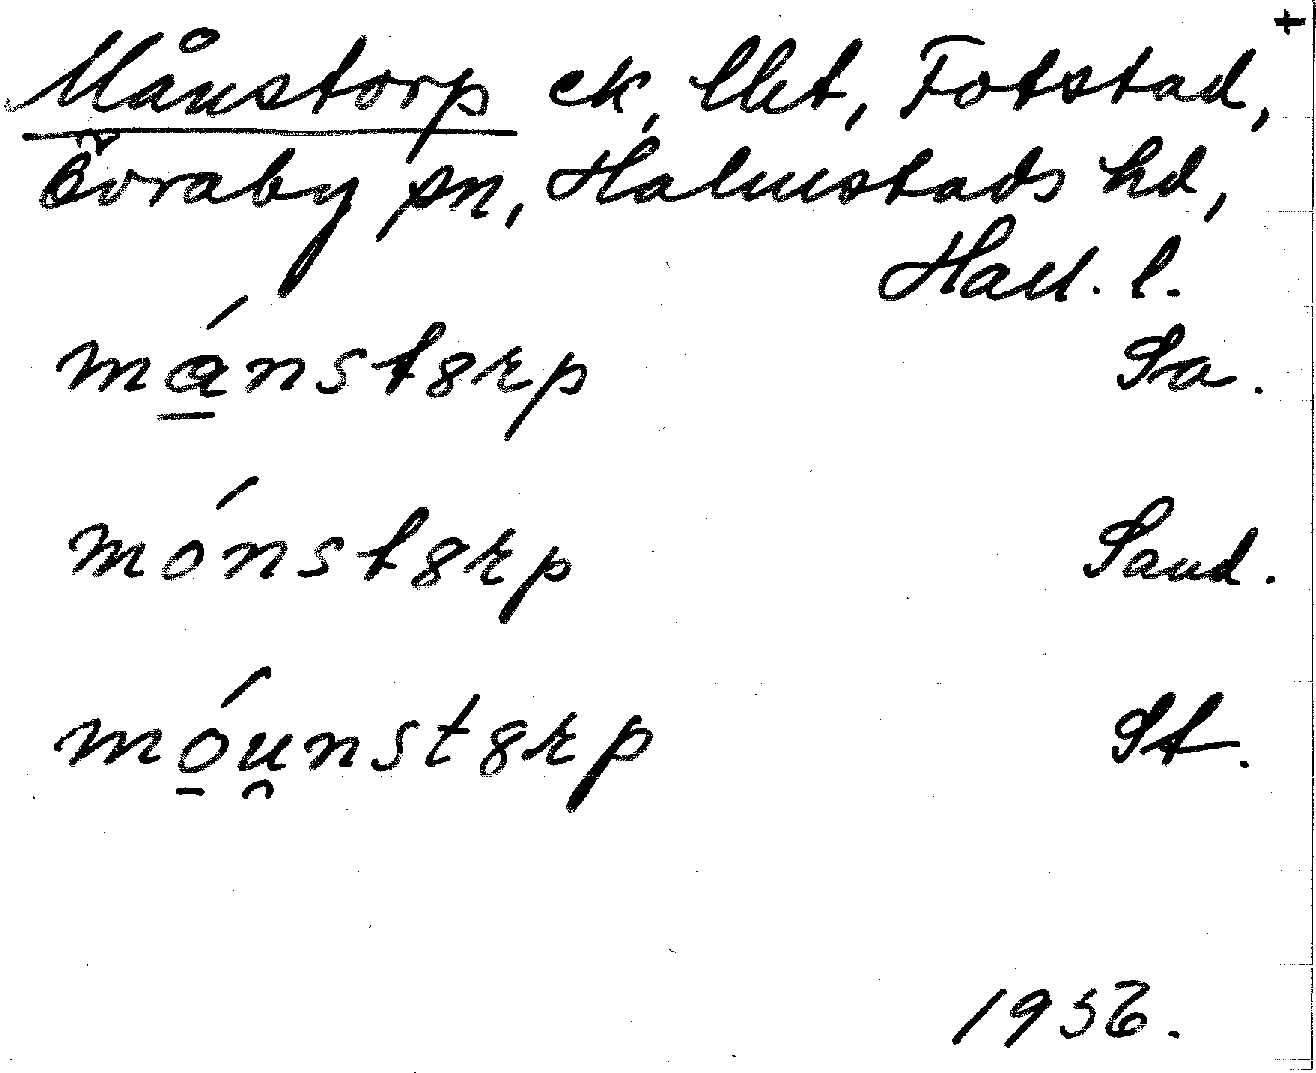 +
Månstorp ek, lht, Fotstad,
Övraby sn, Halmstads hd,
Hall. l.
má̱nstɞrp Sa.
mónstɞrp Sand.
mó̱u̯nstɞrp St.
1956.